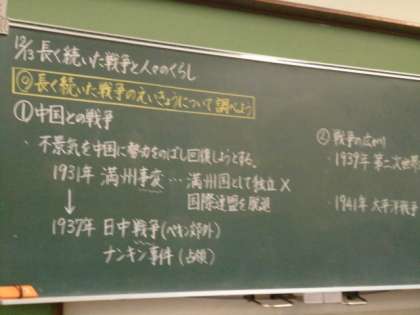 12/13 長く続いた戦争と人々のくらし
◎長く続いた戦争のえいきょうについて調べよう
①中国との戦争
・不景気を中国に勢力をのばし回復しようとする。
1931年 満州事変…満州国として独立 ×
国際連盟を脱退
↓
1937年 日中戦争(ペキン郊外)
ナンキン事件(占領)
②戦争の広がり
1939年 第二次世界
1941年 太平洋戦争